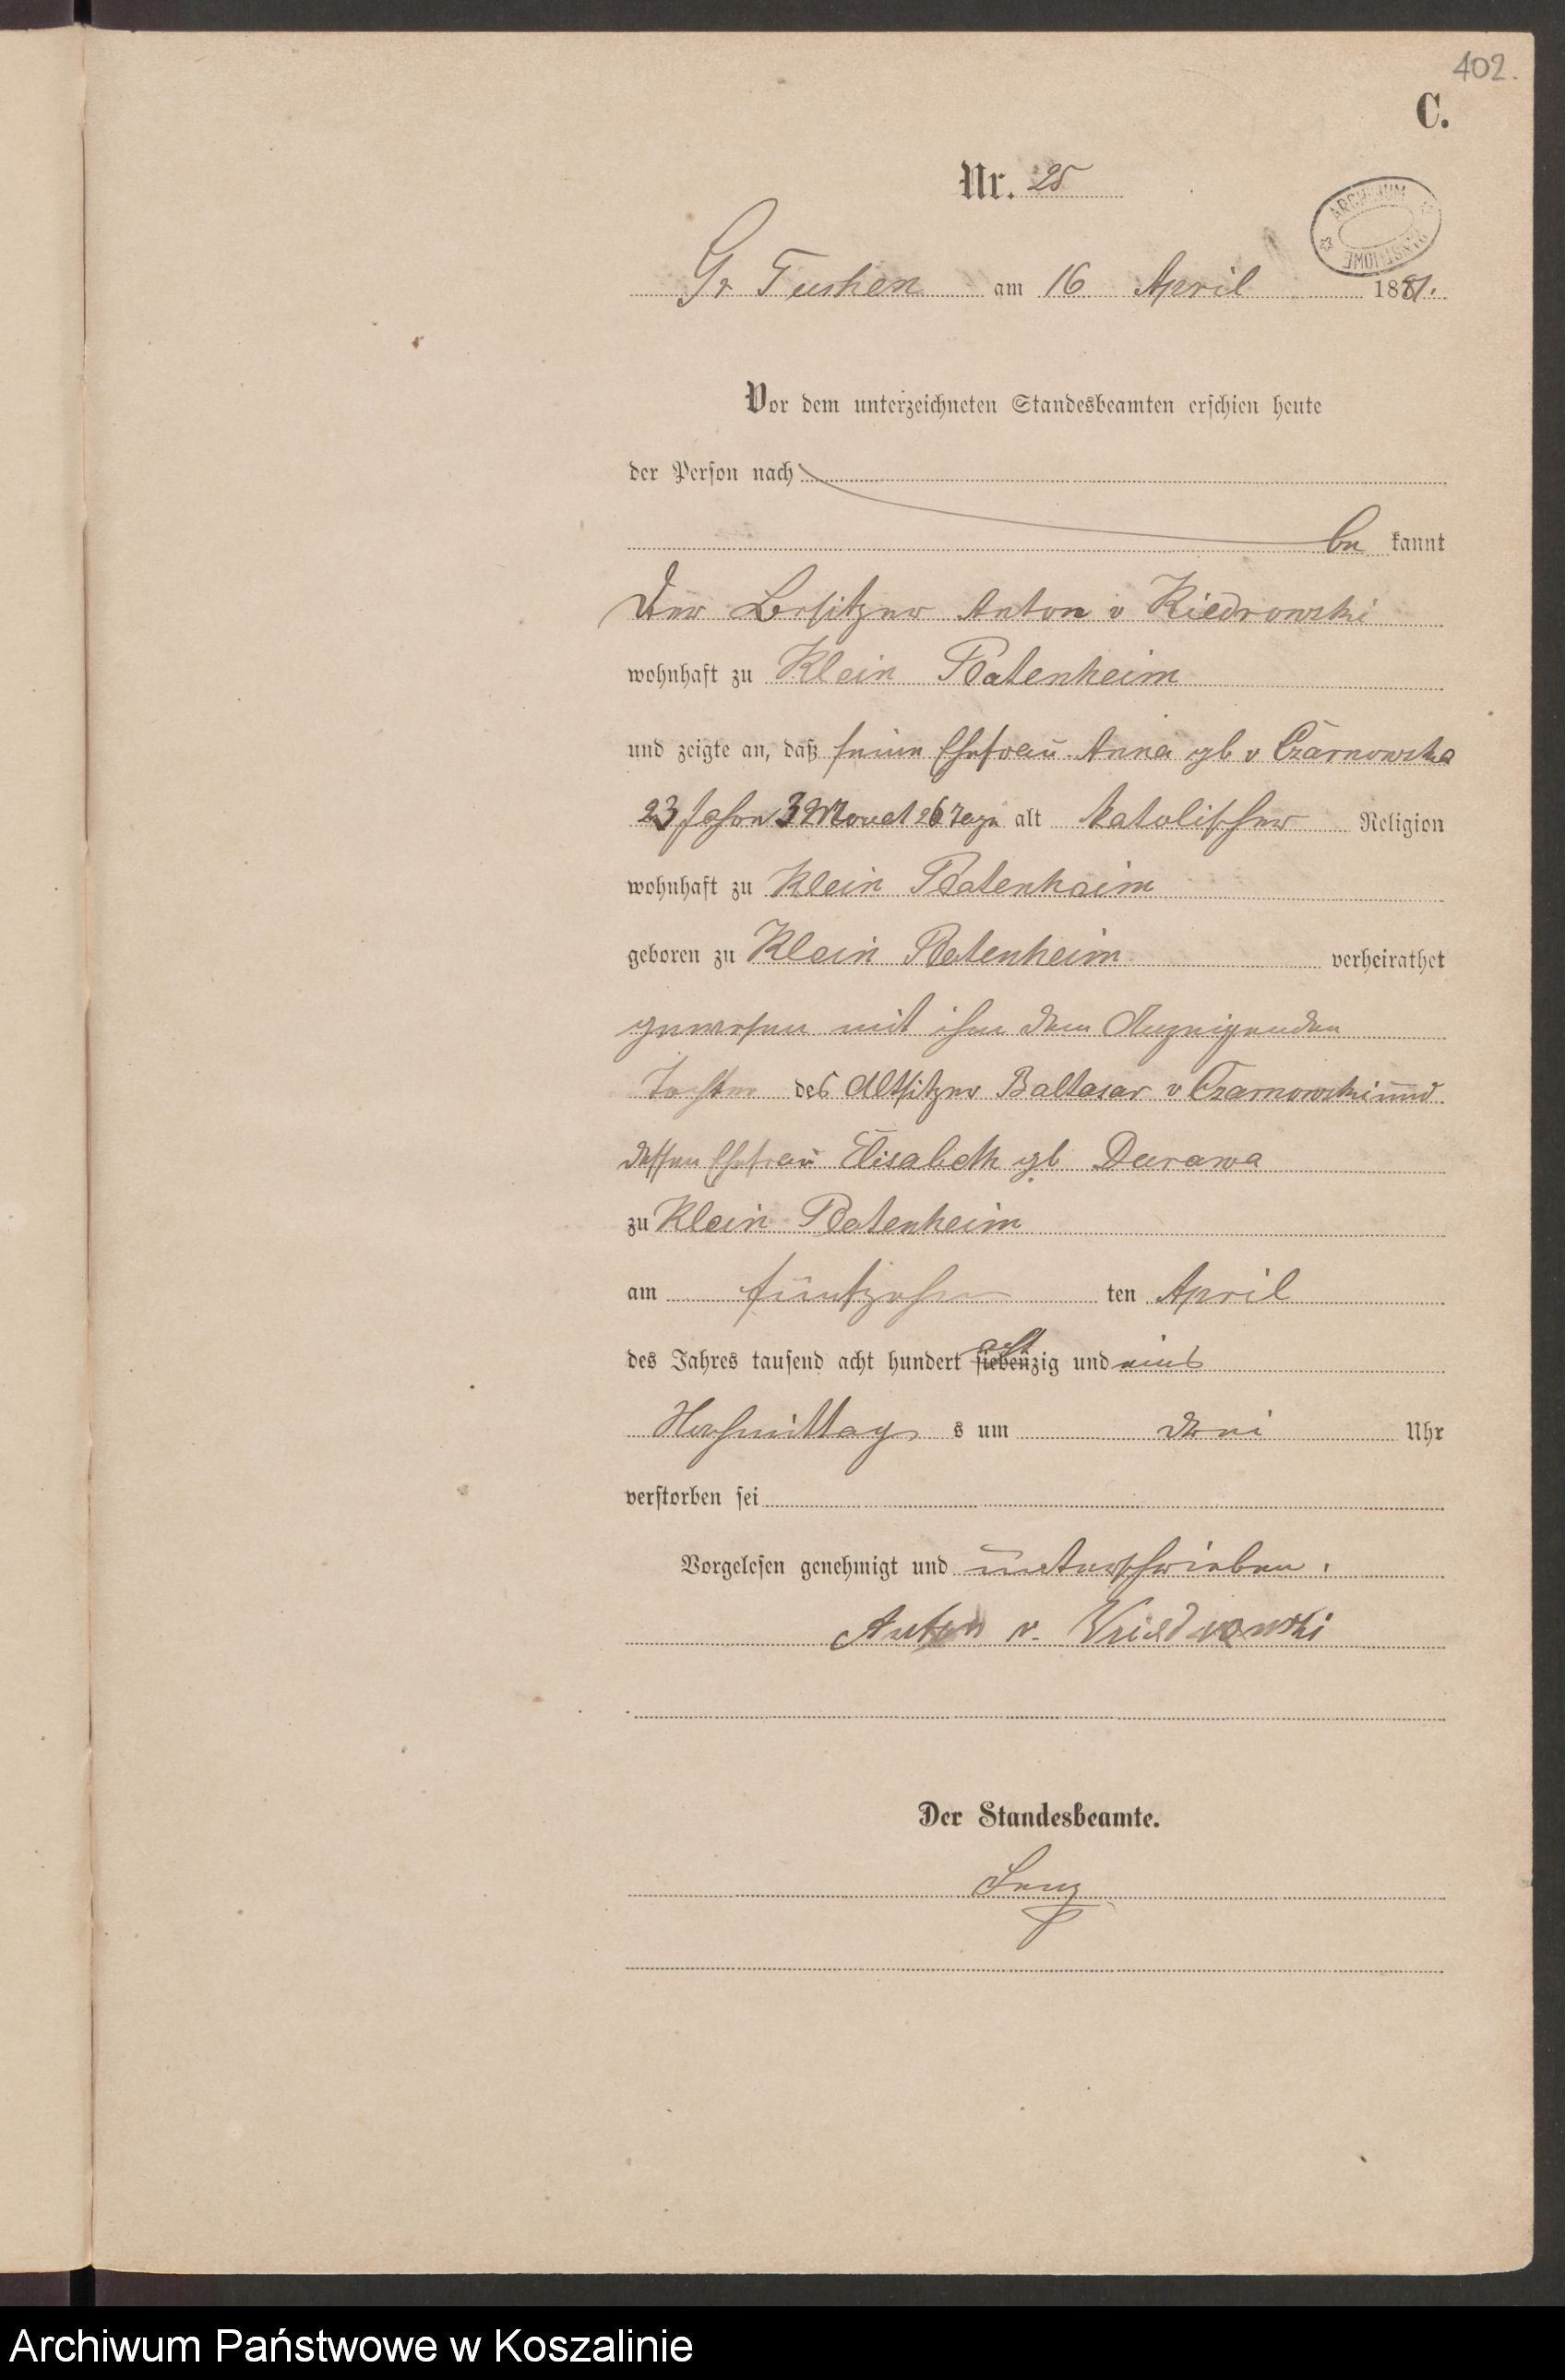 402.
C.
Nr. 25
ARCHIWUM PAŃSTWOWE
Gr Tuchen am 16 April 1881.
Vor dem unterzeichneten Standesbeamten erschien heute
der Person nach
be kannt
Der Besitzer Anton v Kiedrowski
wohnhaft zu Klein Platenheim
und zeigte an, daß seine Ehefrau Anna gb v Czarnowska
23 Jahre 3 Monat 26 Tage alt katolischer Religion
wohnhaft zu Klein Platenheim
geboren zu Klein Platenheim verheirathet
gewesen mit ihm dem Anzeigenden
Tochter des Altsitzer Baltasar v Czarnowski und
dessen Ehefrau Elisabeth gb Durawa
zu Klein Platenheim
am fünfzehn ten April
des Jahres tausend acht hundert siebenzig acht und eins
Nachmittags s um drei Uhr
verstorben sei
Vorgelesen genehmigt und unterschrieben.
Anton v. Kiedrowski
Der Standesbeamte.
Archiwum Państwowe w Koszalinie